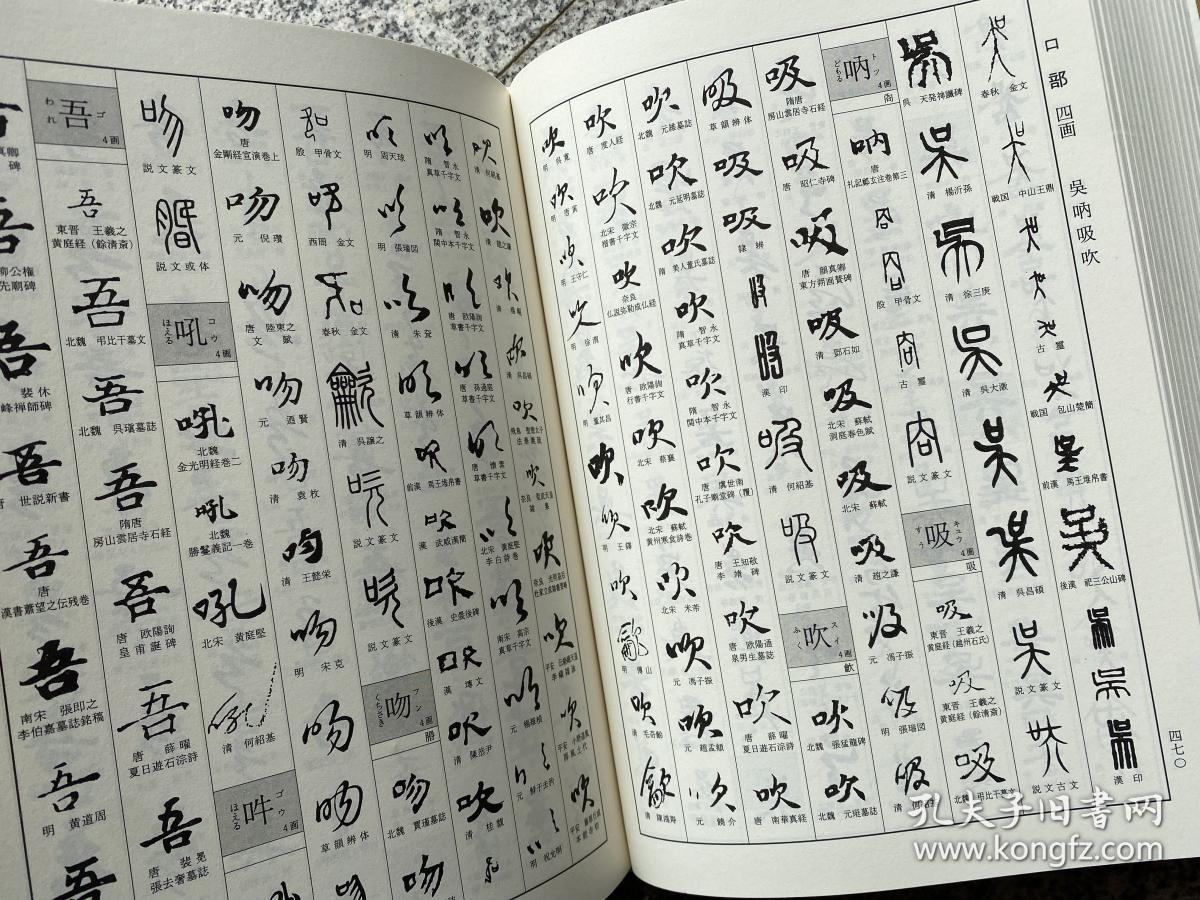 口部 四画
吳吶吸吹
四七〇
春秋 金文
戦国 中山王鼎
古璽
戦国 包山楚簡
前漢 馬王堆帛書
後漢 祀三公山碑
漢印
吳 天発神讖碑
清 楊沂孫
清 徐三庚
清 吳大澂
清 吳昌碩
説文篆文
説文古文
吶
トツ
どもる
4画
唐
礼記鄭玄注巻第三
殷 甲骨文
古璽
説文篆文
吸
キュウ
すう
4画
東晋 王羲之
黄庭経(越州石氏)
東晋 王羲之
黄庭経(餘清斎)
北魏 弔比干墓文
隋唐
房山雲居寺石経
唐 昭仁寺碑
唐 顔真卿
東方朔画賛碑
清 鄧石如
北宋 蘇軾
洞庭春色賦
北宋 蘇軾
清 趙之謙
元 馮子振
明 張瑞図
草韻辨体
隷辨
漢印
清 何紹基
説文篆文
吹
スイ
ふく
4画
北魏 張猛龍碑
北魏 元珽墓誌
北魏 元維墓誌
北魏 元延明墓誌
隋 美人董氏墓誌
隋 智永
真草千字文
隋 智永
関中本千字文
唐 虞世南
孔子廟堂碑(覆)
唐 王知敬
李靖碑
唐 欧陽通
泉男生墓誌
唐 薛曜
夏日遊石淙詩
唐 南華真経
唐 度人経
北宋 徽宗
楷書千字文
奈良
仏説弥勒成仏経
唐 欧陽詢
行書千字文
北宋 蔡襄
北宋 蘇軾
黄州寒食詩巻
北宋 米芾
元 馮子振
元 趙孟頫
元 饒介
明 吳寛
明 唐寅
明 王守仁
明 徐渭
明 董其昌
明 王鐸
明 傅山
清 毛奇齢
清 陳鴻寿
清 何紹基
清 趙之謙
清 楊峴
清 吳昌碩
隋 智永
真草千字文
隋 智永
関中本千字文
唐 欧陽詢
草書千字文
唐 孫過庭
草書千字文
唐 懐素
北宋 黄庭堅
李白詩巻
南宋 高宗
真草千字文
元 鮮于去矜
明 祝允明
明 周天球
明 張瑞図
清 朱耷
草韻辨体
前漢 馬王堆帛書
漢 武威漢簡
後漢 史晨後碑
漢 塼文
清 陳浩尹
清 桂馥
殷 甲骨文
西周 金文
春秋 金文
清 吳譲之
説文篆文
説文篆文
吻
フン
くちさき
4画
北魏 賈瑾墓誌
唐
金剛経宣演巻上
元 倪瓚
唐 陸柬之
文賦
元 迺賢
清 袁枚
清 王懿栄
明 宋克
草韻辨体
説文篆文
説文或体
吼
コウ
ほえる
4画
北魏
金光明経巻二
北魏
勝鬘義記一巻
北宋 黄庭堅
清 何紹基
吽
ゴウ
ほえる
4画
吾
ゴ
われ
4画
東晋 王羲之
黄庭経(餘清斎)
北魏 弔比干墓文
北魏 吳瑱墓誌
隋唐
房山雲居寺石経
唐 欧陽詢
皇甫誕碑
唐 薛曜
夏日遊石淙詩
唐 裴冕
張去奢墓誌
裴休
峰禅師碑
世説新書
唐
漢書蕭望之伝残巻
南宋 張即之
李伯嘉墓誌銘稿
明 黄道周
孔夫子旧书网
www.kongfz.com